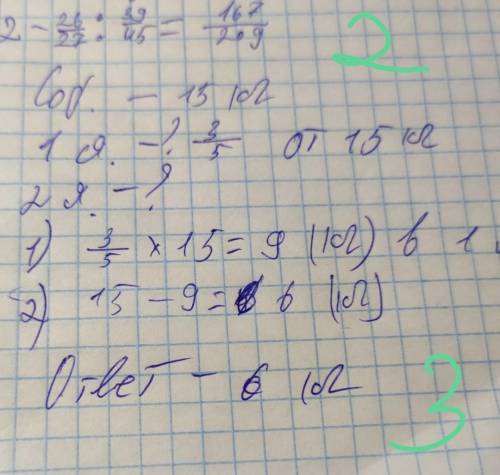 2 - 26/27 : 39/45 = 167/209
2
Соб. - 15 кг
1 я. - ? 3/5 от 15 кг
2 я. - ?
1) 3/5 × 15 = 9 (кг) в 1
2) 15 - 9 = 6 (кг)
Ответ - 6 кг
3